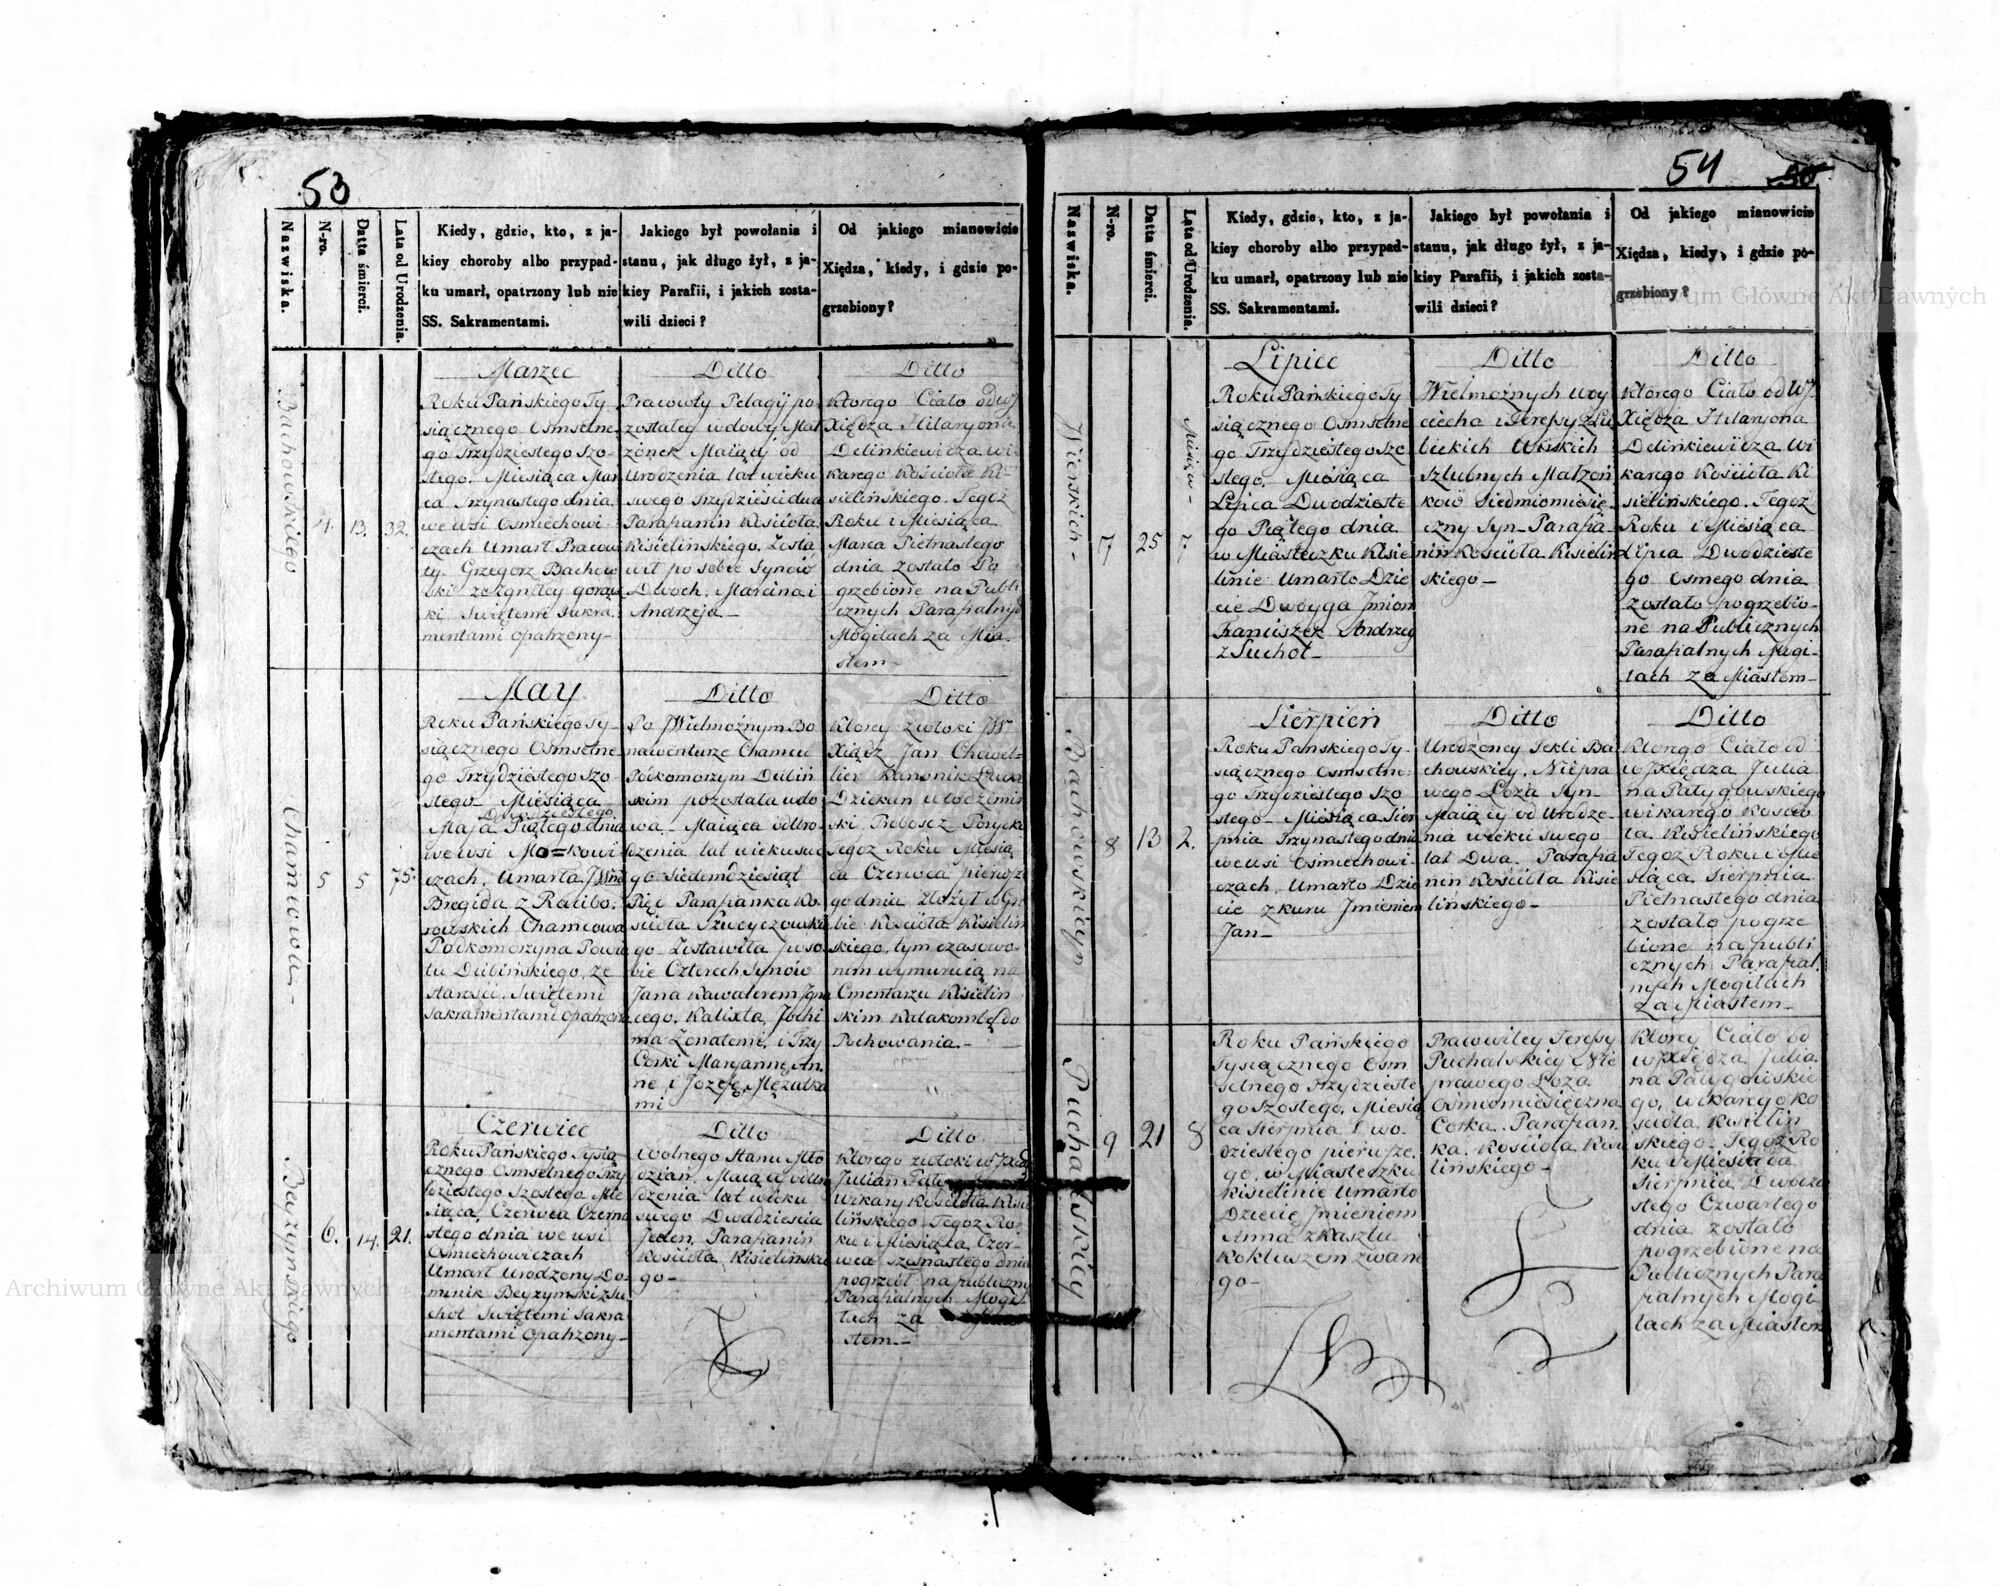 53
Nazwiska.
N-ro.
Datta śmierci.
Lata od Urodzenia.
Kiedy, gdzie, kto, z ja-
kiey choroby albo przypad-
ku umarł, opatrzony lub nie
SS. Sakramentami.
Jakiego był powołania i
stanu, jak długo żył, z ja-
kiey Parafii, i jakich zosta-
wili dzieci?
Od jakiego mianowicie
Xiędza, kiedy, i gdzie po-
grzebiony?
Bachowskiego
4.
13.
32.
Marzec
Roku Pańskiego Ty-
siącznego Osmsetne-
go Trzydziestego Szo-
stego. Miesiąca Mar
ca Trzynastego dnia
we wsi Osmiechowi-
czach Umarł Pracow
ty Grzegorz Bachow
ski ze zgniłey gorącz
ki Swiętemi Sakra-
mentami opatrzony-
Ditto
Pracowły Pelagij po-
zostałey wdowy Mał
żonek Maiący od
Urodzenia lat wieku
swego Trzydzieści dwa
Parafianin Kościoła
Kisielińskiego. Zosta
wił po sobie Synów
Dwoch, Marcina i
Andrzeja-
Ditto
Ktorego Ciało od WJ
Xiędza Hilaryona
Delinkiewicza wi-
karego Kościoła Ki-
sielińskiego. Tegoż
Roku i Miesiąca
Marca Pietnastego
dnia zostało Po
grzebione na Publi
cznych Parafialnych
Mogiłach za Mia-
stem-
Chamcowa-
5
5
75.
May
Roku Pańskiego Ty-
siącznego Osmsetne-
go Trzydziestego Szo-
stego- Miesiąca
Dwudziestego
Maja Piątego dnia
we wsi Mo=kowi
czach, Umarła JWna
Bregida z Racibo-
rowskich Chamcowa
Podkomorzyna Powia
tu Dubińskiego, ze
starości. Swiętemi
Sakramentami opatrzona
Ditto
Po JWielmożnym Bo
nawenturze Chamcu
Podkomorzym Dubiń
skim pozostała wdo
wa- Maiąca od Uro-
dzenia lat wieku swe
go Siedemdziesiąt
Pięć Parafianka Ko-
ścioła Swoyczowskie
go- Zostawiła po so-
bie Czterech Synów
Jana Kawalerem Igna
cego, Kalixta, Joachi
ma Żonatemi, i Trzy
Corki Maryannę, An-
nę i Jozefę Mężatka
mi
Ditto
Ktorey zwłoki JW
Xiądz Jan Chawel-
lier Kanonik Łucki
Dziekan Włodzimir
ski, Proboszcz Porycki
Tegoż Roku Miesią
ca Czerwca pierwsze
go dnia złożył w Gro
bie Kościoła Kisieliń
skiego, tym czasowo-
nim wymuruią na
Cmentarzu Kisieliń
skim Katakombę do
Pochowania.-
Beyzymskiego
6.
14.
21.
Czerwiec
Roku Pańskiego Tysią
cznego Osmsetnego Trzy
dziestego Szostego Mie
siąca Czerwca Czerna
stego dnia we wsi
Osmiechowiczach
Umarł Urodzony Do-
minik Beyzymski z Su
chot Swiętemi Sakra
mentami opatrzony-
Ditto
Wolnego Stanu Mło
dzian, Maiący od Uro
dzenia lat wieku
swego Dwadzieścia
jeden. Parafianin
Kościoła Kisielińskie
go-
Ditto
Ktorego zwłoki WJXiądz
Julian
Wikary Kościoła Kisie
lińskiego Tegoż Ro-
ku i Miesiąca Czer-
wca szesnastego dnia
pogrzebł na publiczny
Parafialnych Mogi-
łach za
stem-
54
Nazwiska.
N-ro.
Datta śmierci.
Lata od Urodzenia.
Kiedy, gdzie, kto, z ja-
kiey choroby albo przypad-
ku umarł, opatrzony lub nie
SS. Sakramentami.
Jakiego był powołania i
stanu, jak długo żył, z ja-
kiey Parafii, i jakich zosta-
wili dzieci?
Od jakiego mianowicie
Xiędza, kiedy, i gdzie po-
grzebiony?
7
25
7.
Lipiec
Roku Pańskiego Ty
siącznego Osmsetne
go Trzydziestego Szo
stego, Miesiąca
Lipca Dwudzieste
go Piątego dnia
w Miasteczku Kisie
linie Umarło Dzie
cie Dwoyga Jmion
Franciszek Andrzey
z Suchot-
Ditto
Wielmożnych Woy
ciecha i Teresy z Lu
beckich
Szlubnych Małżon
kow Siedmiomiesię
czny Syn- Parafia-
nin Kościoła Kisieliń
skiego-
Ditto
Ktorego Ciało od WJ
Xiędza Hilaryona
Delinkiewicza Wi
karego Kościoła Ki
sielińskiego. Tegoż
Roku i Miesiąca
Lipca Dwudzieste
go Osmego dnia
zostało pogrzebio-
ne na Publicznych
Parafialnych Mogi-
łach za Miastem-
8
13
2.
Sierpień
Roku Pańskiego Ty-
siącznego Osmsetne-
go Trzydziestego Szo
stego- Miesiąca Sier
pnia Trzynastego dnia
we wsi Osmiechowi-
czach, Umarło Dzie
cie z kuru Jmieniem
Jan-
Ditto
Urodzoney Tekli Ba
chowskiey. Niepra
wego Łoża Syn-
Maiący od Urodze-
nia wieku swego
lat Dwa. Parafia
nin Kościoła Kisie
lińskiego-
Ditto
Ktorego Ciało od
WJXiędza Julia
na Pałygowskiego
wikarego Koscio
ła Kisielińskiego
Tegoż Roku i Mie
siąca Sierpnia
Pietnastego dnia
zostało pogrze
bione na publi
cznych Parafial.
nych Mogiłach
Za Miastem-
Puchalskiey
9
21
8
Roku Pańskiego
Tysiącznego Osm
setnego Trzydzieste
go Szostego, Miesią
ca Sierpnia Dwu-
dziestego pierwsze-
go, w Miasteczku
Kisielinie Umarło
Dziecię Jmieniem
Anna z kaszlu
Kokluszem zwane
go-
Pracowitey Teresy
Puchalskiey Nie
prawego Łoża
Osmiomiesięczna
Corka. Parafian.
ka Kościoła Kisie
lińskiego-
Ktorey Ciało od
WJXiędza Julia.
na Pałygowskie
go, wikarego Ko
ścioła Kisieliń
skiego- Tegoż Ro
ku i Miesiąca
Sierpnia Dwudzie
stego Czwartego
dnia zostało
pogrzebione na
Publicznych Para
fialnych Mogi
łach za Miastem
Archiwum Główne Akt Dawnych
Archiwum Główne Akt Dawnych